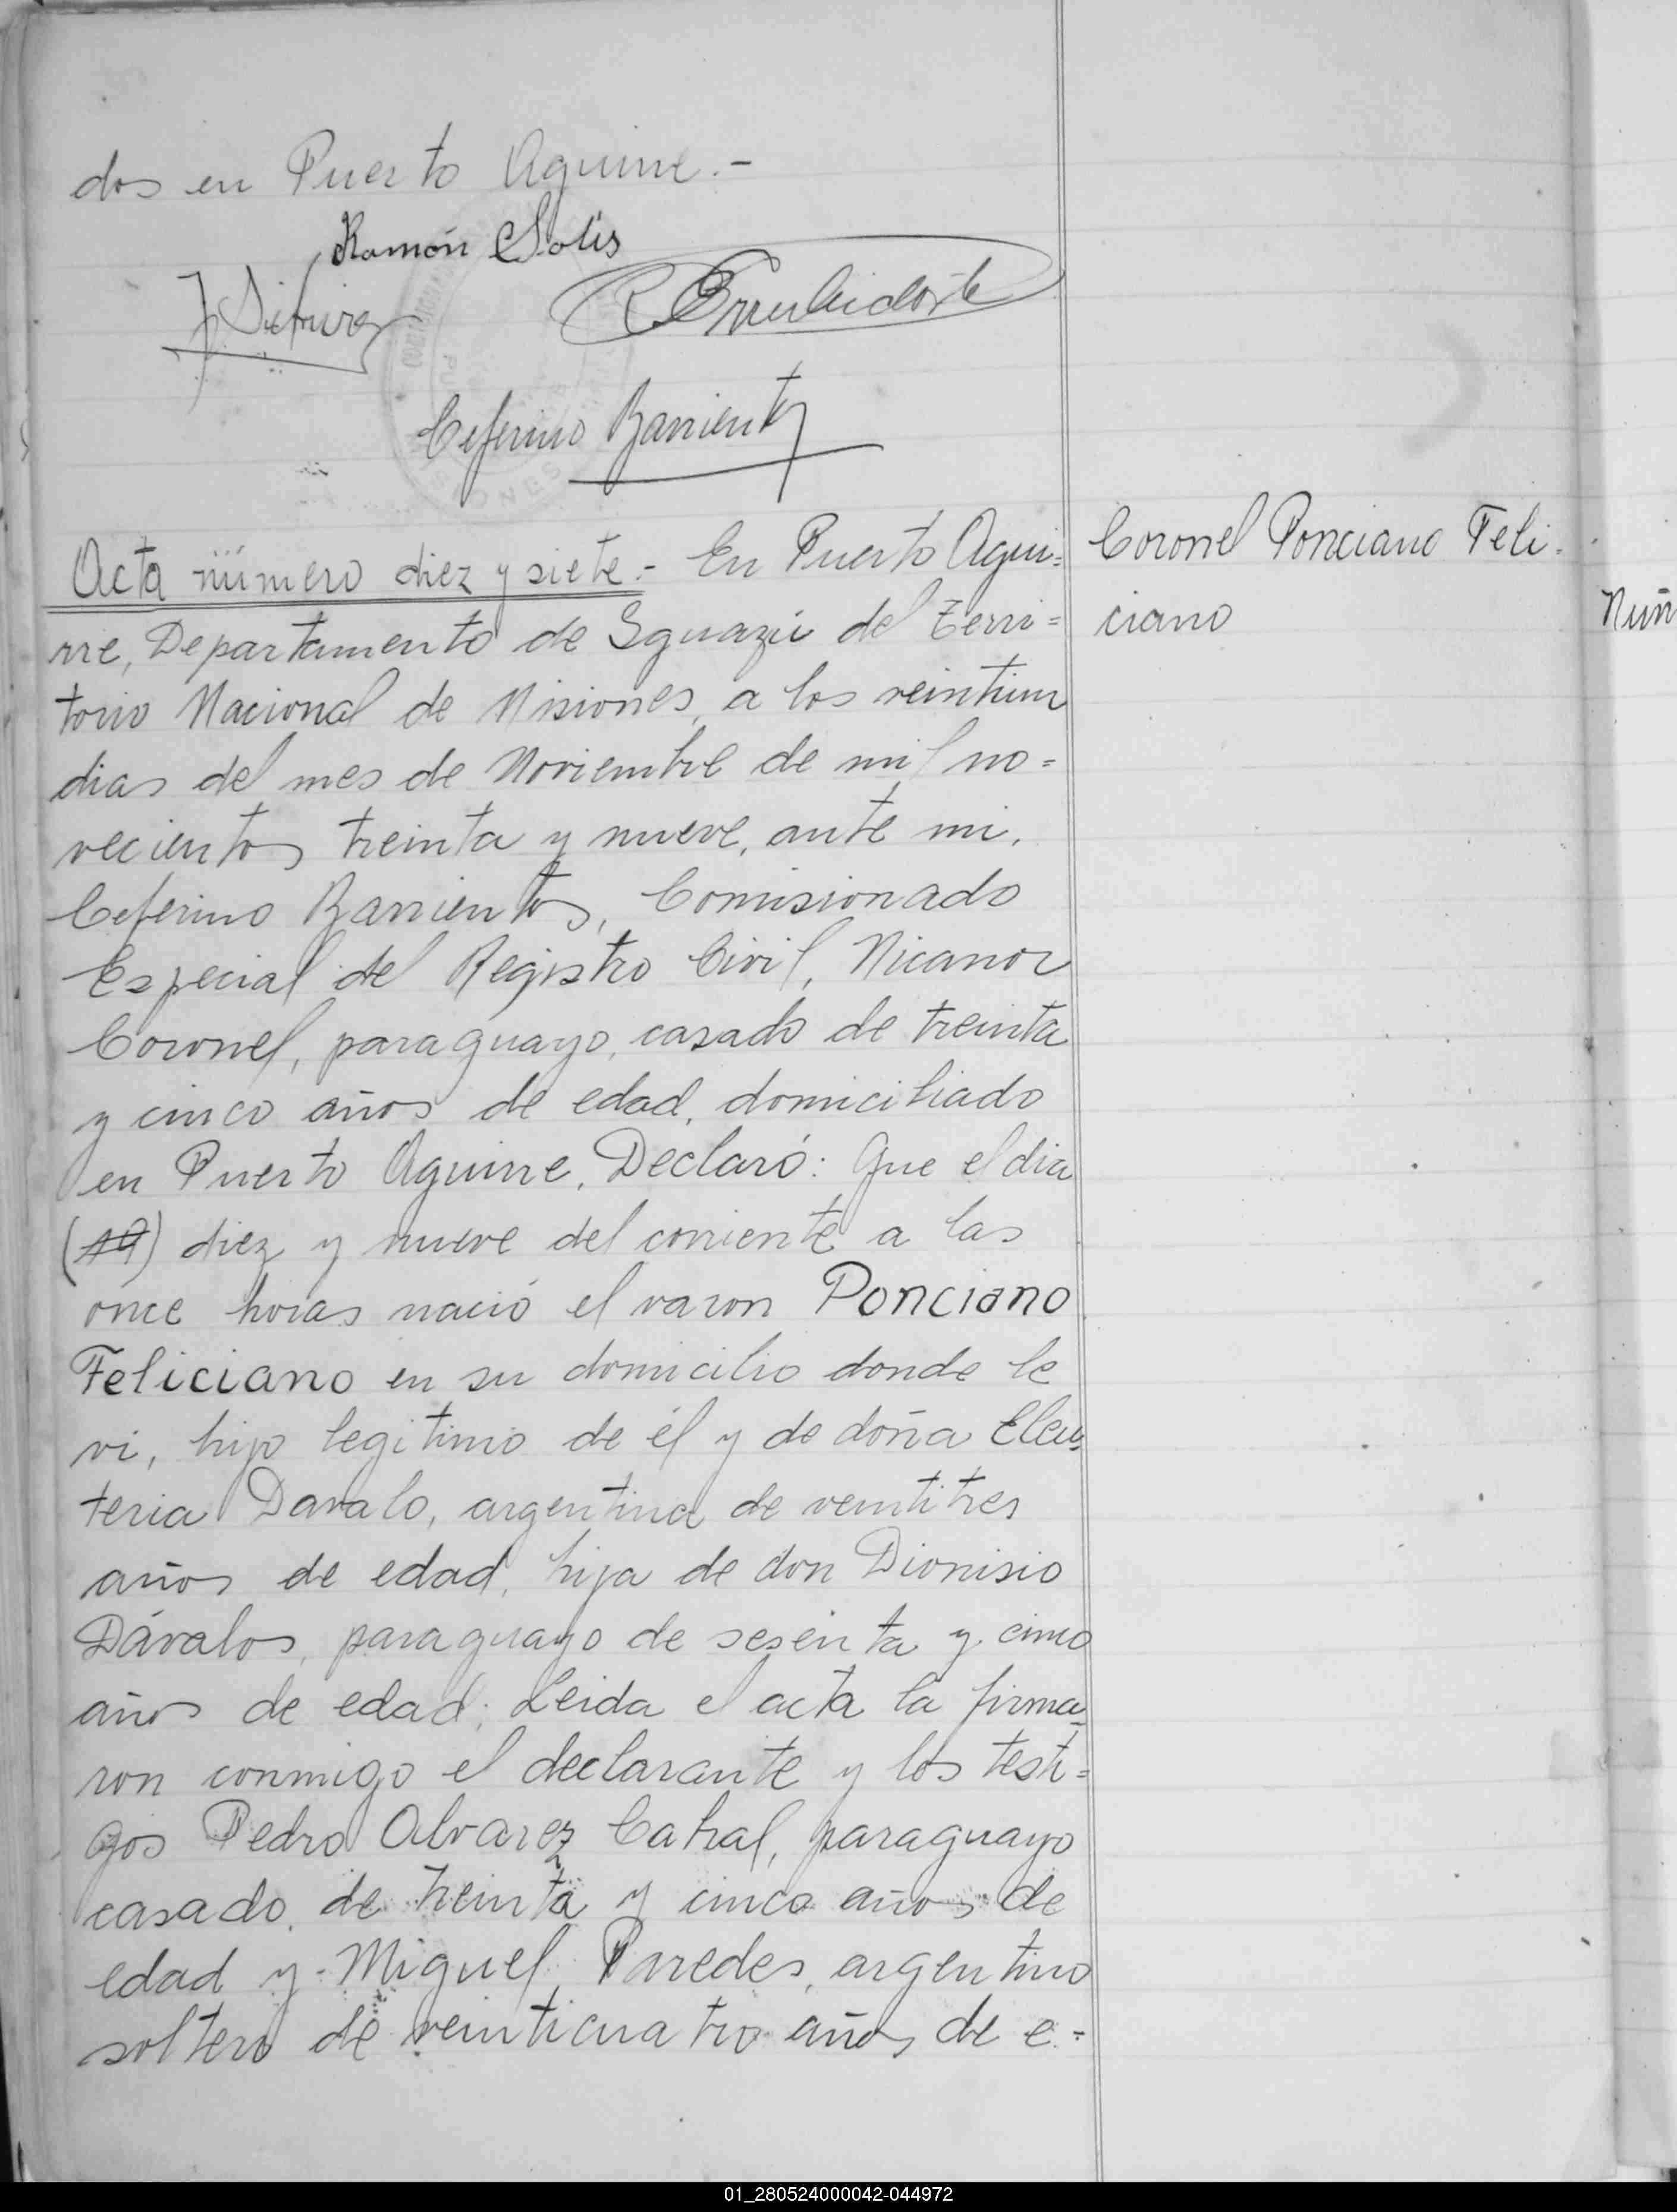 dos en Puerto Aguirre.-
Ramón Solis
Ceferino Barrientos
Acta número diez y siete.- En Puerto Agui=
rre, Departamento de Iguazú del Terri=
torio Nacional de Misiones, a los veintiun
dias del mes de Noviembre de mil no=
vecientos treinta y nueve, ante mi,
Ceferino Barrientos, Comisionado
Especial del Registro Civil, Nicanor
Coronel, paraguayo, casado de treinta
y cinco años de edad, domiciliado
en Puerto Aguirre, Declaró: Que el dia
(19) diez y nueve del corriente a las
once horas nació el varon Ponciano
Feliciano en su domicilio donde le
vi, hijo legitimo de él y de doña Eleu=
teria Davalo, argentina de veintitres
años de edad, hija de don Dionisio
Dávalos, paraguayo de sesenta y cinco
años de edad; Leida el acta la firma=
ron conmigo el declarante y los testi=
gos Pedro Alvarez Cabral, paraguayo
casado, de treinta y cinco años de
edad y Miguel Paredes, argentino
soltero de veinticuatro años de e=
Coronel Ponciano Feli=
ciano
Nuñ
01_280524000042-044972